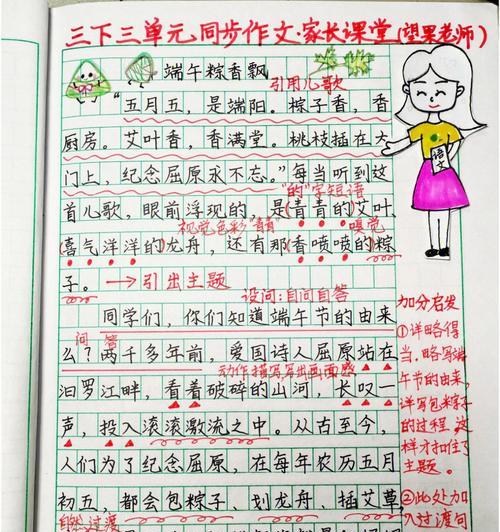 三下三单元同步作文·家长课堂(望果老师)
端午粽香飘
引用儿歌
"五月五,是端阳。粽子香,香
厨房。艾叶香,香满堂。桃枝插在大
门上,纪念屈原永不忘。"每当听到这
"的"字短语
首儿歌,眼前浮现的,是(青青的)艾叶、
视觉色彩"青青"
嗅觉
(喜气洋洋的)龙舟,还有那(香喷喷的)粽
子。
引出主题
设问:自问自答
同学们,你们知道端午节的由来
问 答
么?两千多年前,爱国诗人屈原站在
动作描写,写出画面感
汨罗江畔,看着破碎的山河,长叹一
声,投入滚滚激流之中。从古至今,
人们为了纪念屈原,在每年农历五月
初五,都会包粽子、划龙舟、插艾草,
自然过渡
语文
加分启发
①详略得
当,略写端
午节的由来,
详写包粽子
的过程,这
样才扣住了
主题。
②此处加
入过渡句